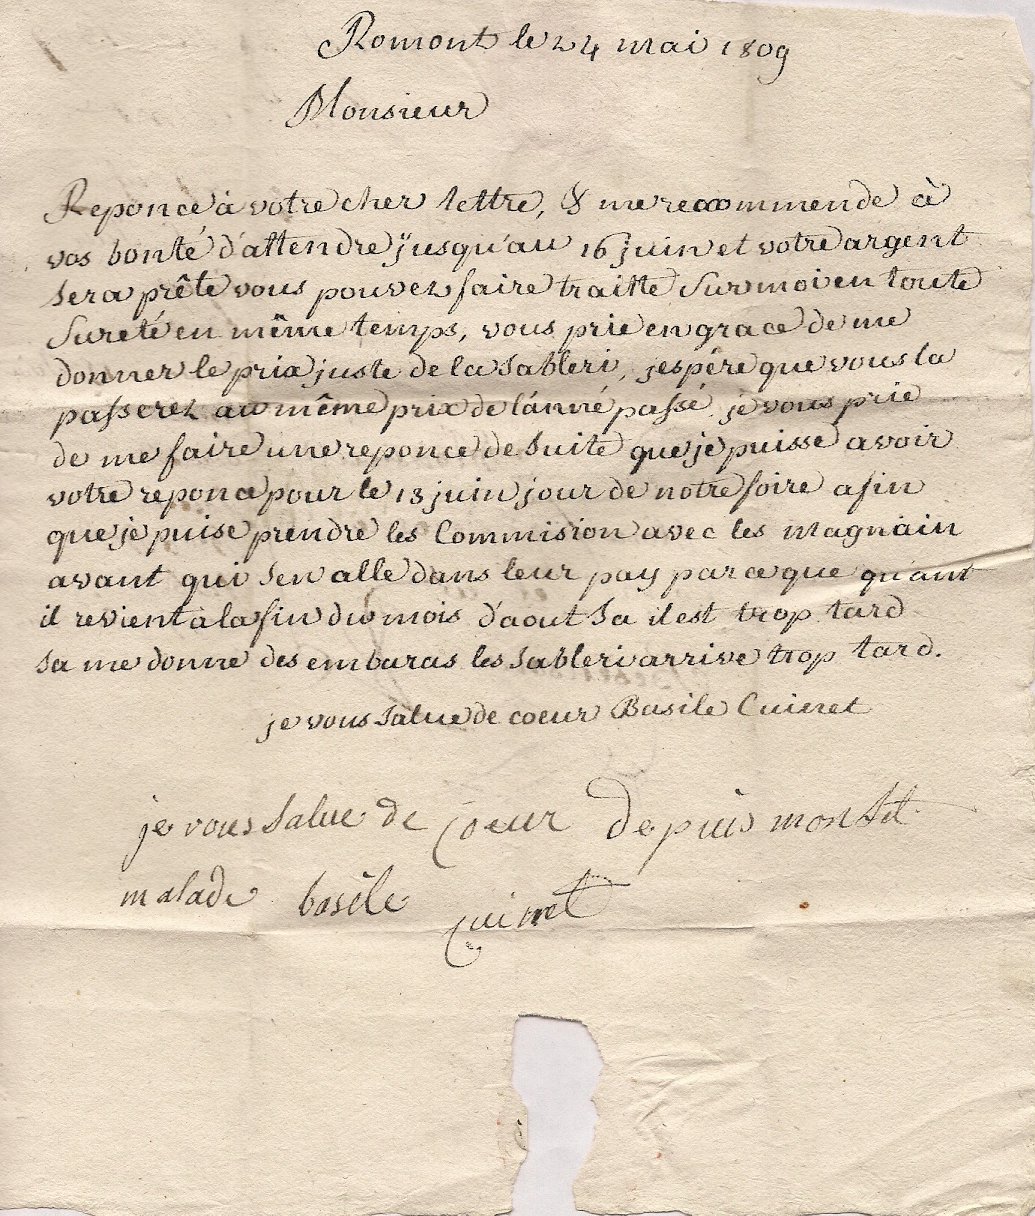 Romont le 24 mai 1809
Monsieur
Reponce à votre cher lettre, & me recommende à
vos bonté d'attendre jusqu'au 16 juin et votre argent
sera prête vous pouvez faire traitte sur moi en toute
sureté en même temps, vous prie en grace de me
donner le prix juste de la sableri, jespére que vous la
passerez au même prix de lánné passé. je vous prie
de me faire une reponce de suite que je puisse avoir
votre reponce pour le 13 juin jour de notre foire afin
que je puise prendre les Commision avec les magnain
avant qui sen alle dans leur pay parce que qu'ant
il revient à la fin du mois d'aout sa il est trop tard
sa me donne des embaras les sableri arrive trop tard.
je vous salue de coeur Basile Cuinet
je vous salue de coeur depuis mon lit
malade basile
Cuinet